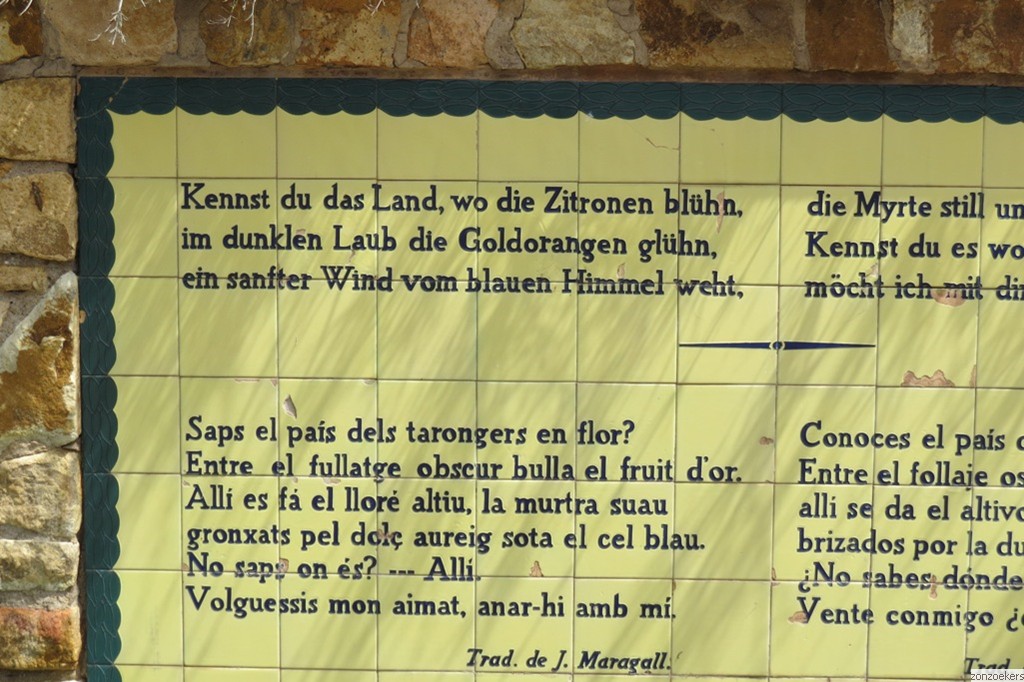 Kennst du das Land, wo die Zitronen blühn,
im dunklen Laub die Goldorangen glühn,
ein sanfter Wind vom blauen Himmel weht,
die Myrte still un
Kennst du es wo
möcht ich mit dir
Saps el país dels tarongers en flor?
Entre el fullatge obscur bulla el fruit d'or.
Allí es fá el lloré altiu, la murtra suau
gronxats pel dolç aureig sota el cel blau.
No saps on és? --- Allí.
Volguessis mon aimat, anar-hi amb mí.
Trad. de J. Maragall.
Conoces el país d
Entre el follaje os
alli se da el altivo
brizados por la du
¿No sabes dónde
Vente conmigo ¿
Trad
zonzoekers